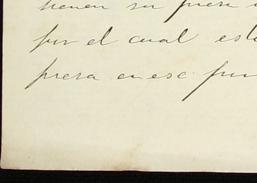 tienen su
por el cual est
presa en ese pun